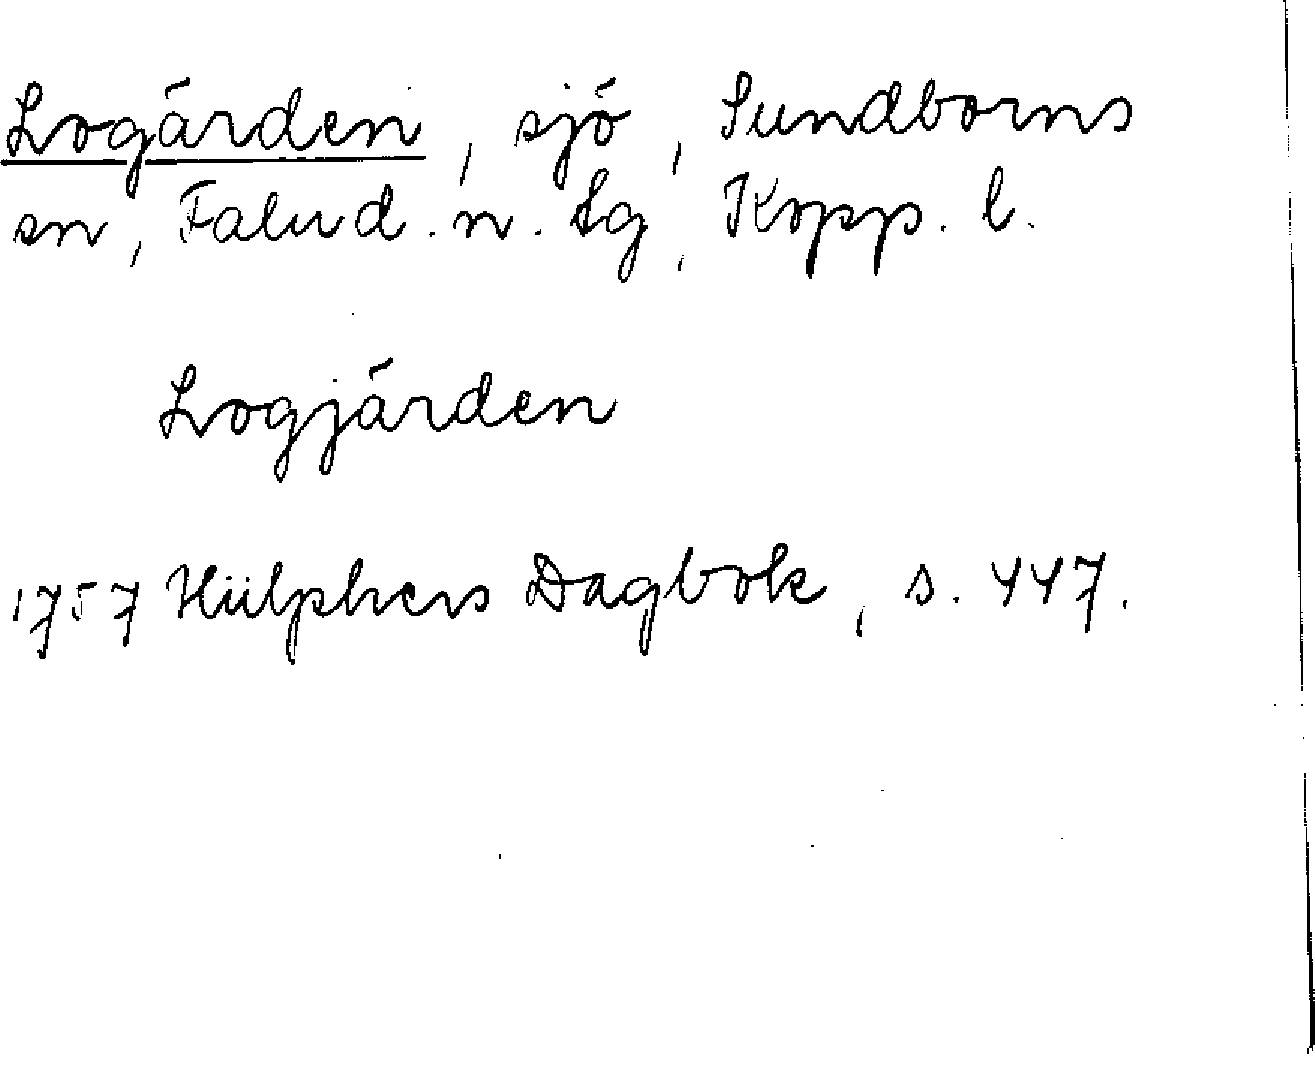 Logärden, sjö, Sundborns
sn, Falu d. n. Lg, Kopp. l.
Logjärden
1757 Hülphers Dagbok, s. 447.